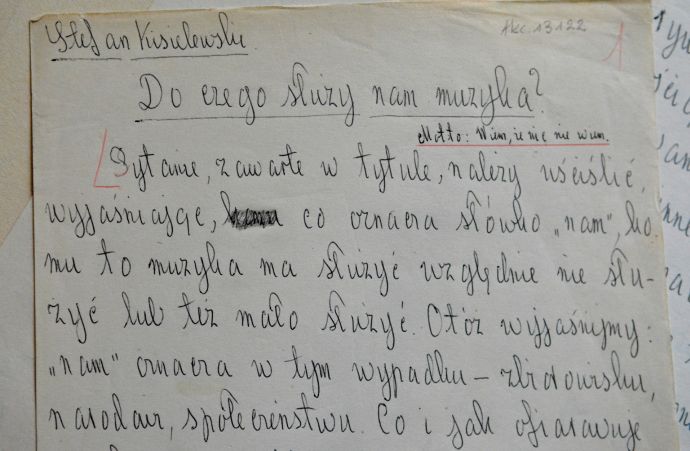 Stefan Kisielewski.
Akc. 13122
1
Do czego służy nam muzyka?
Motto: Wiem, że nic nie wiem.
Pytanie, zawarte w tytule, należy uściślić,
wyjaśniając, co oznacza słówko „nam”, ko
mu to muzyka ma służyć względnie nie słu-
żyć lub też mało służyć. Otóż wyjaśnijmy:
„nam” oznacza w tym wypadku – zbiorowisku,
narodowi, społeczeństwu. Co i jak ofiarowuje